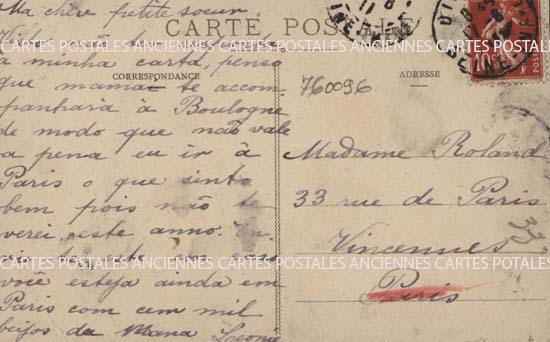 Ma chère petite soeur
CARTE POSTALE
a minha carta, penso
CORRESPONDANCE
que maman te accom-
panhará à Boulogne
de modo que não vale
a pena eu ir à
Paris o que sinto
bem pois não te
verei este anno.
você esteja ainda em
Paris com cem mil
beijos da Mana Leonie
ADRESSE
760096
Madame Roland
33 rue de Paris
Vincennes
Paris
33
POSTES
CARTES POSTALES ANCIENNES CARTES POSTALES ANCIENNES CARTES POSTALES